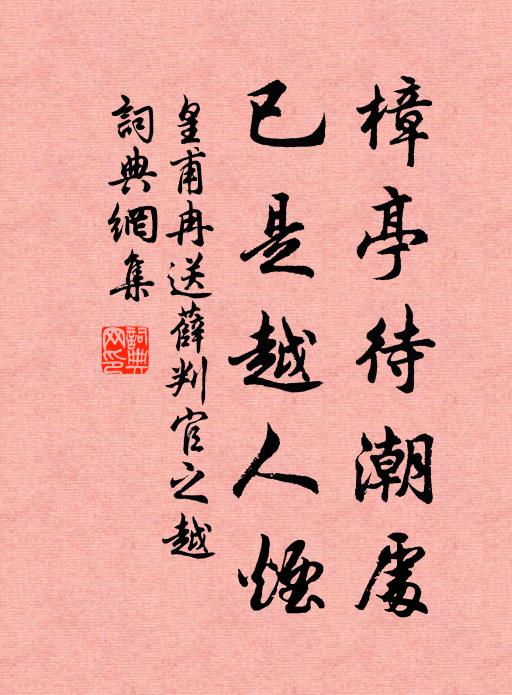 樟亭待潮處
已是越人煙
皇甫冉送薛判官之越
詞典網集
詞典網印